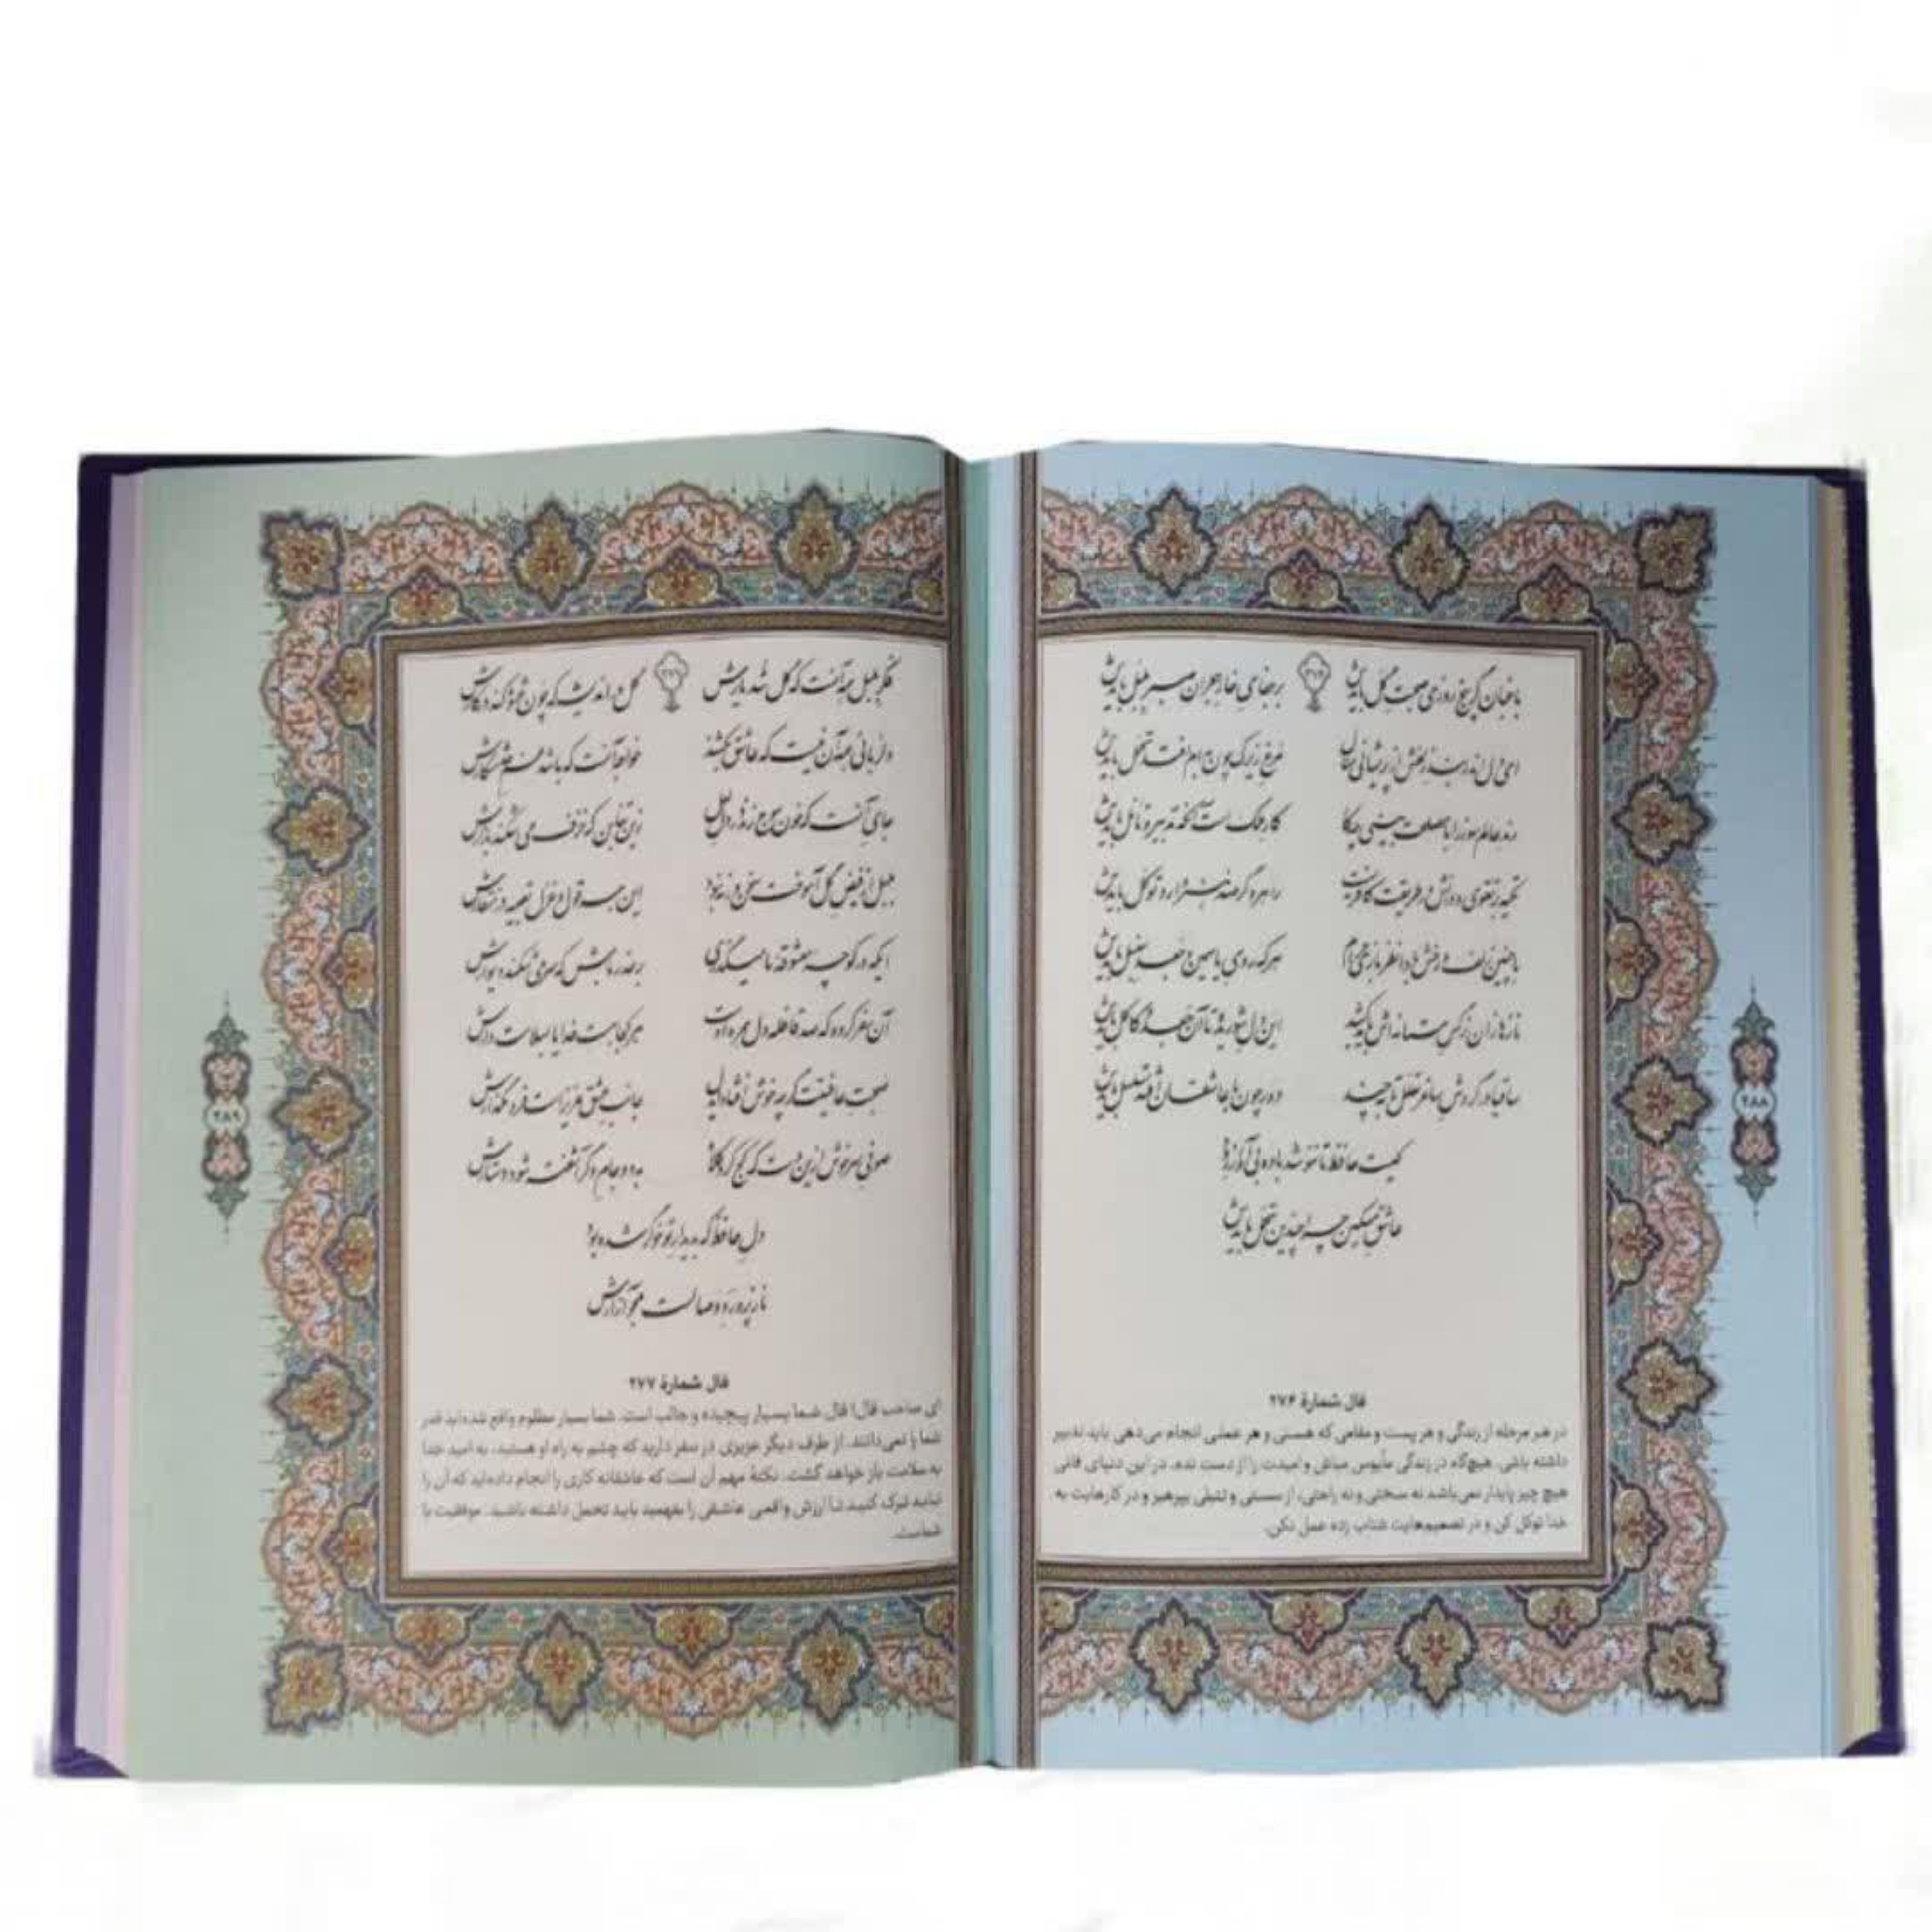 باغبان گر پنج روزی صحبت گل بایدش ۲۷۶ بر جفای خار هجران صبر بلبل بایدش
ای دل اندر بند زلفش از پریشانی منال مرغ زیرک چون به دام افتد تحمل بایدش
رند عالم سوز را با مصلحت بینی چکار کار ملک است آنکه تدبیر و تأمل بایدش
تکیه بر تقوی و دانش در طریقت کافریست راهرو گر صد هنر دارد توکل بایدش
با چنین زلف و رخش بادا نظربازی حرام هر که روی یاسمین و جعد سنبل بایدش
نازها زان نرگس مستانه اش باید کشید این دل شوریده تا آن جعد و کاکل بایدش
ساقیا در گردش ساغر تعلل تا به چند دور چون با عاشقان افتد تسلسل بایدش
کیست حافظ تا ننوشد باده بی آواز رود
عاشق مسکین چرا چندین تجمل بایدش
فال شمارهٔ ۲۷۶
در هر مرحله از زندگی و هر پست و مقامی که هستی و هر عملی انجام می‌دهی باید تدبیر
داشته باشی. هیچ‌گاه در زندگی مأیوس مباش و امیدت را از دست نده. در این دنیای فانی
هیچ چیز پایدار نمی‌باشد نه سختی و نه راحتی، از سستی و تنبلی بپرهیز و در کارهایت به
خدا توکل کن و در تصمیم‌هایت شتاب زده عمل نکن.
۲۸۸
فکر بلبل همه آنست که گل شد یارش ۲۷۷ گل در اندیشه که چون عشوه کند در کارش
دلربائی همه آن نیست که عاشق بکشند خواجه آنست که باشد غم خدمتگارش
جای آنست که خون موج زند در دل لعل زین تغابن که خزف می شکند بازارش
بلبل از فیض گل آموخت سخن ورنه نبود این همه قول و غزل تعبیه در منقارش
ایکه در کوچه معشوقه ما میگذری بر حذر باش که سر می شکند دیوارش
آن سفر کرده که صد قافله دل همره اوست هر کجا هست خدایا به سلامت دارش
صحبت عافیتت گرچه خوش افتاد ای دل جانب عشق عزیز است فرو مگذارش
صوفی سرخوش ازین دست که کج کرد کلاه به دو جام دگر آشفته شود دستارش
دل حافظ که به دیدار تو خوگر شده بود
نازپرورد وصالست مجو آزارش
فال شمارهٔ ۲۷۷
ای صاحب فال! فال شما بسیار پیچیده و جالب است. شما بسیار مظلوم واقع شده‌اید قدر
شما را نمی‌دانند. از طرف دیگر عزیزی در سفر دارید که چشم به راه او هستید، به امید خدا
به سلامت باز خواهد گشت. نکتهٔ مهم آن است که عاشقانه کاری را انجام داده‌اید که آن را
نباید ترک کنید تا ارزش واقعی عاشقی را بفهمید باید تحمل داشته باشید. موفقیت با
شماست.
۲۸۹